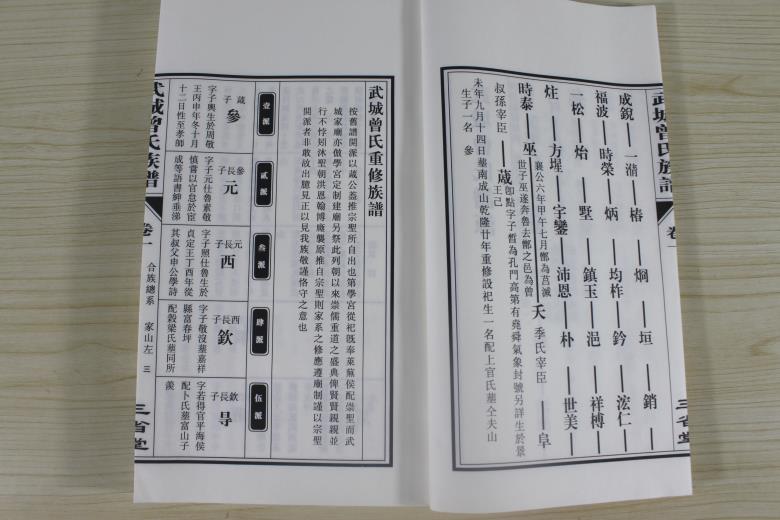 武城曾氏族譜
卷一
三省堂
成銳 一濳 椿 烱 垣 銷
福波 時榮 炳 均柞 鈐 浤仁
一松 始 墅 鎮玉 浥 祥槫
炷 方墀 宇鑾 沛恩 朴 世美 阜
時泰 巫 襄公六年甲午七月鄫為莒滅
世子巫遂奔魯去鄫之邑為曾
夭 季氏宰臣
叔孫宰臣 蒧 即點字子晳為孔門高第有堯舜氣象封號另詳生於景
王己
未年九月十四日墓南成山乾隆廿年重修設祀生一名配上官氏墓仝夫山
生子一名 參
武城曾氏重修族譜
按舊譜開派以蒧公蓋推宗聖所自出也第學宮從祀旣奉萊蕪侯配崇聖而武
城家廟亦倣學宮定制建廟另祭此列朝以來崇儒重道之盛典俾賢賢親親並
行不悖矧沐聖朝洪恩翰博廕襲原推自宗聖則家系之修應遵廟制謹以宗聖
開派者非敢故出臆見正以見我族敬謹恪守之意也
壹派
貳派
叁派
肆派
伍派
蒧子 參
字子輿生於周敬
王丙申年冬十月
十二日性至孝師
參長子 元
字子元仕魯素敬
慎嘗以官怠於宦
成等語書紳垂涕
元長子 西
字子照仕魯生於
貞定王丁酉年從
其叔父申公學詩
西長子 欽
字子敬沒墓嘉祥
縣富春坪
配穀梁氏墓同所
欽長子 㝵
字若得官平海侯
配卜氏墓富山子
羨
武城曾氏族譜
卷一
合族總系
家山左
三
三省堂